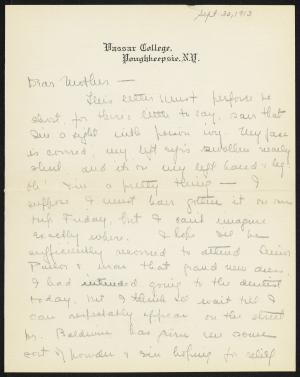 Sept 30, 1913
Vassar College,
Poughkeepsie, N.Y.
Dear Mother —
This letter must perforce be
short, for there's little to say, save that
I'm a sight with poison ivy. My face
is covered, my left eye's swollen nearly
shut and it's on my left hand & leg.
Oh! I'm a pretty thing — I
suppose I must have gotten it on our
trip Friday, but I can't imagine
exactly where. I hope I'll be
sufficiently recovered to attend Senior
Parlor & wear that grand new dress.
I had intended going to the dentist
today, but I think I'll wait till I
can respectably appear on the street
Dr. Baldwin has given me some
sort of powder & I'm hoping for relief